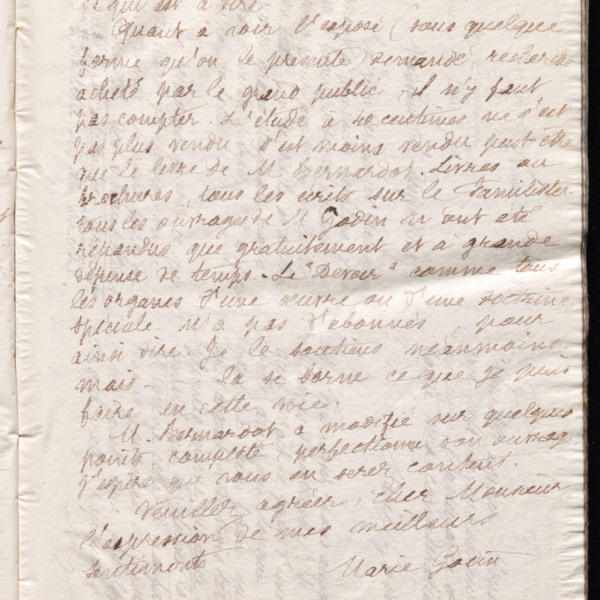 ce qui est à dire.
Quant à voir l'exposé (sous quelque
forme qu'on le présente) demandé, recherché
acheté par le grand public, il n'y faut
pas compter. L'étude à 40 centimes ne s'est
pas plus vendu, s'est moins vendu peut-être
que le livre de M. Bernardot. Livres ou
brochures, tous les écrits sur le Familistère
tous les ouvrages de M. Godin n'ont été
répandus que gratuitement et à grande
dépense de temps. Le "Devoir" comme tous
les organes d'une œuvre ou d'une doctrine
spéciale n'a pas d'abonnés, pour
ainsi dire. Je le soutiens néanmoins
mais. là se borne ce que je puis
faire en cette voie.
M. Bernardot a modifié sur quelques
points, complété, perfectionné son ouvrage
J'espère que vous en serez content.
Veuillez agréer, cher Monsieur
l'expression de mes meilleurs
sentiments
Marie Godin